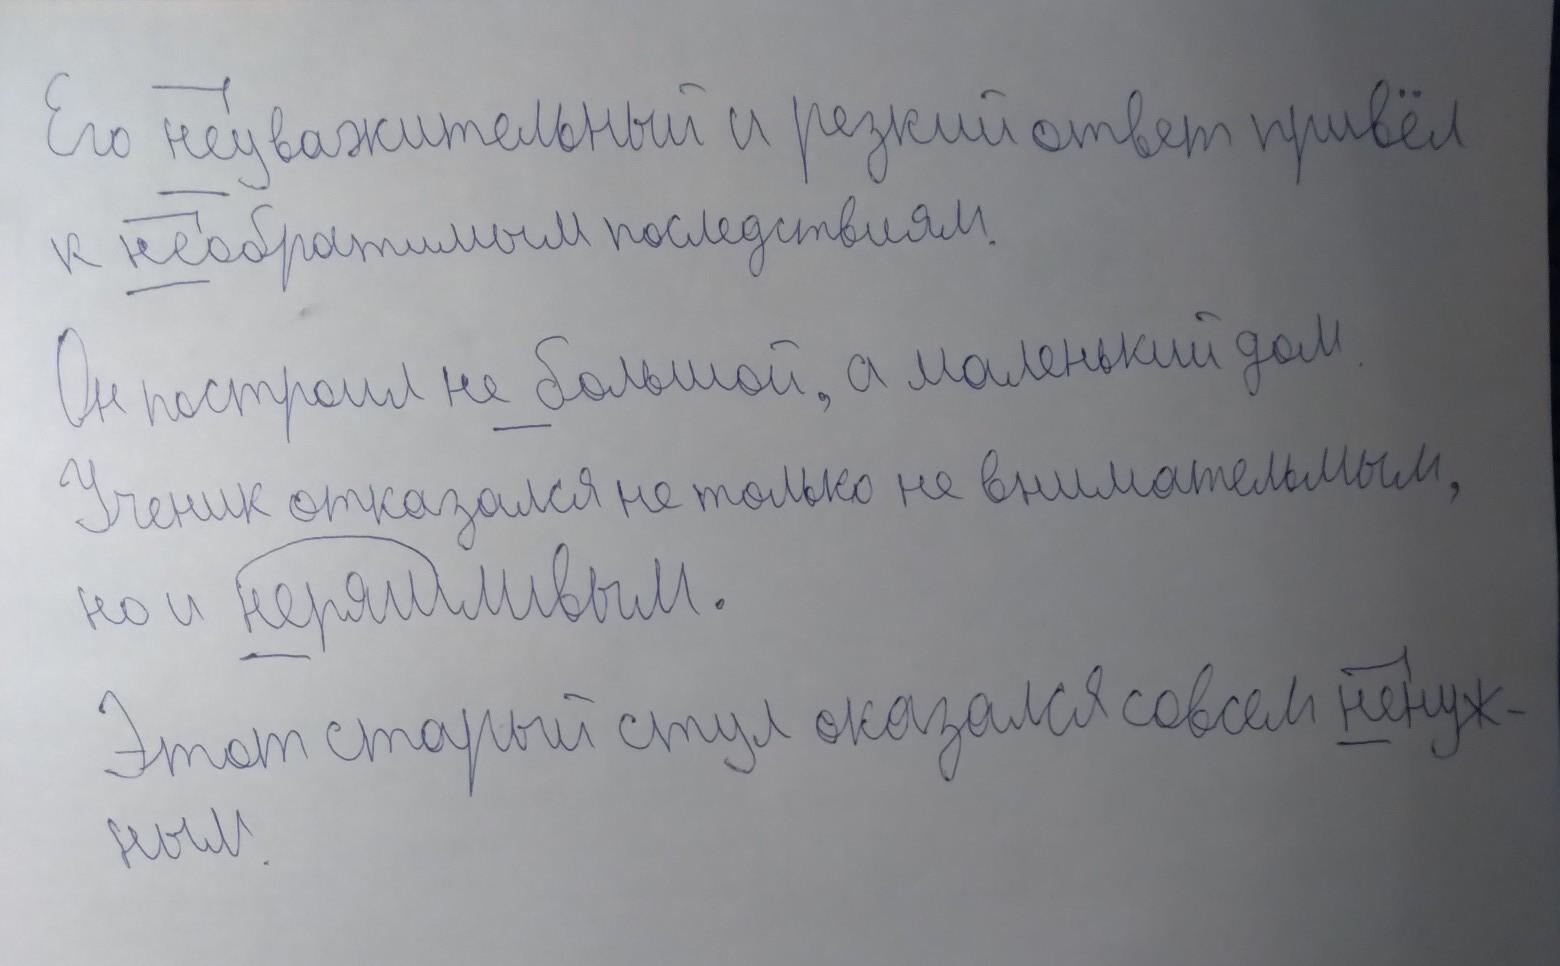 Его неуважительный и резкий ответ привёл
к необратимым последствиям.
Он построил не большой, а маленький дом.
Ученик отказался не только не внимательмым,
но и неряшливым.
Этот старый стул оказался совсем ненуж-
ным.